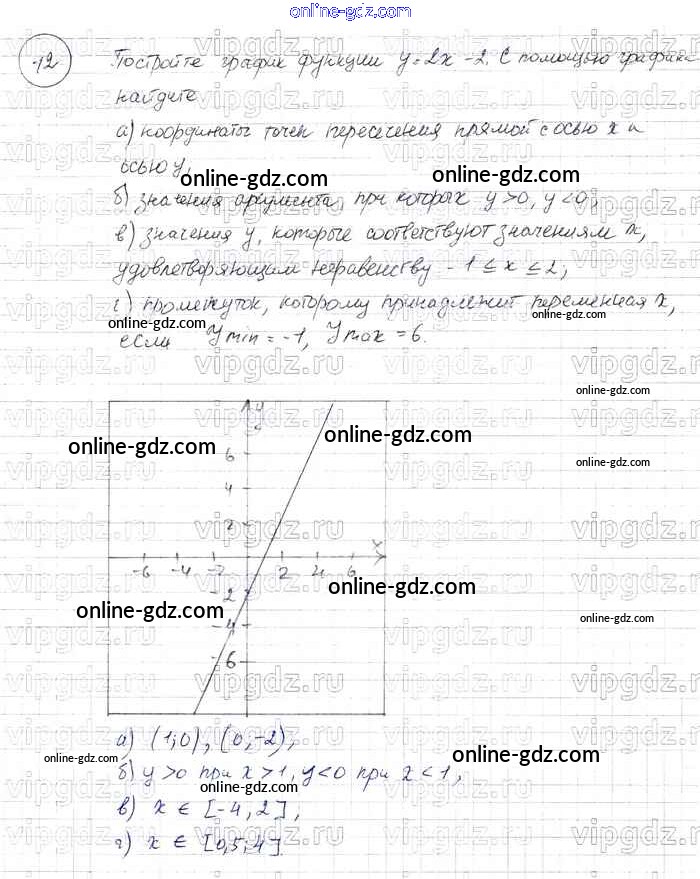 online-gdz.com
12
Постройте график функции y=2x-2. С помощью графика
найдите
а) координаты точек пересечения прямой с осью x и
осью y;
online-gdz.com
online-gdz.com
б) значения аргумента, при которых y>0, y<0;
в) значения y, которые соответствуют значениям x,
удовлетворяющим неравенству -1≤x≤2;
г) промежуток, которому принадлежит переменная x,
online-gdz.com
online-gdz.com
если Ymin=-1, Ymax=6.
online-gdz.com
y
online-gdz.com
online-gdz.com
6
online-gdz.com
4
2
x
-6 -4 -2 2 4 6
online-gdz.com
-2
online-gdz.com
online-gdz.com
-4
-6
а) (1;0), (0,-2);
online-gdz.com
online-gdz.com
б) y>0 при x>1, y<0 при x<1;
в) x ∈ [-4, 2],
online-gdz.com
online-gdz.com
г) x ∈ [0,5;4].
vipgdz.ru